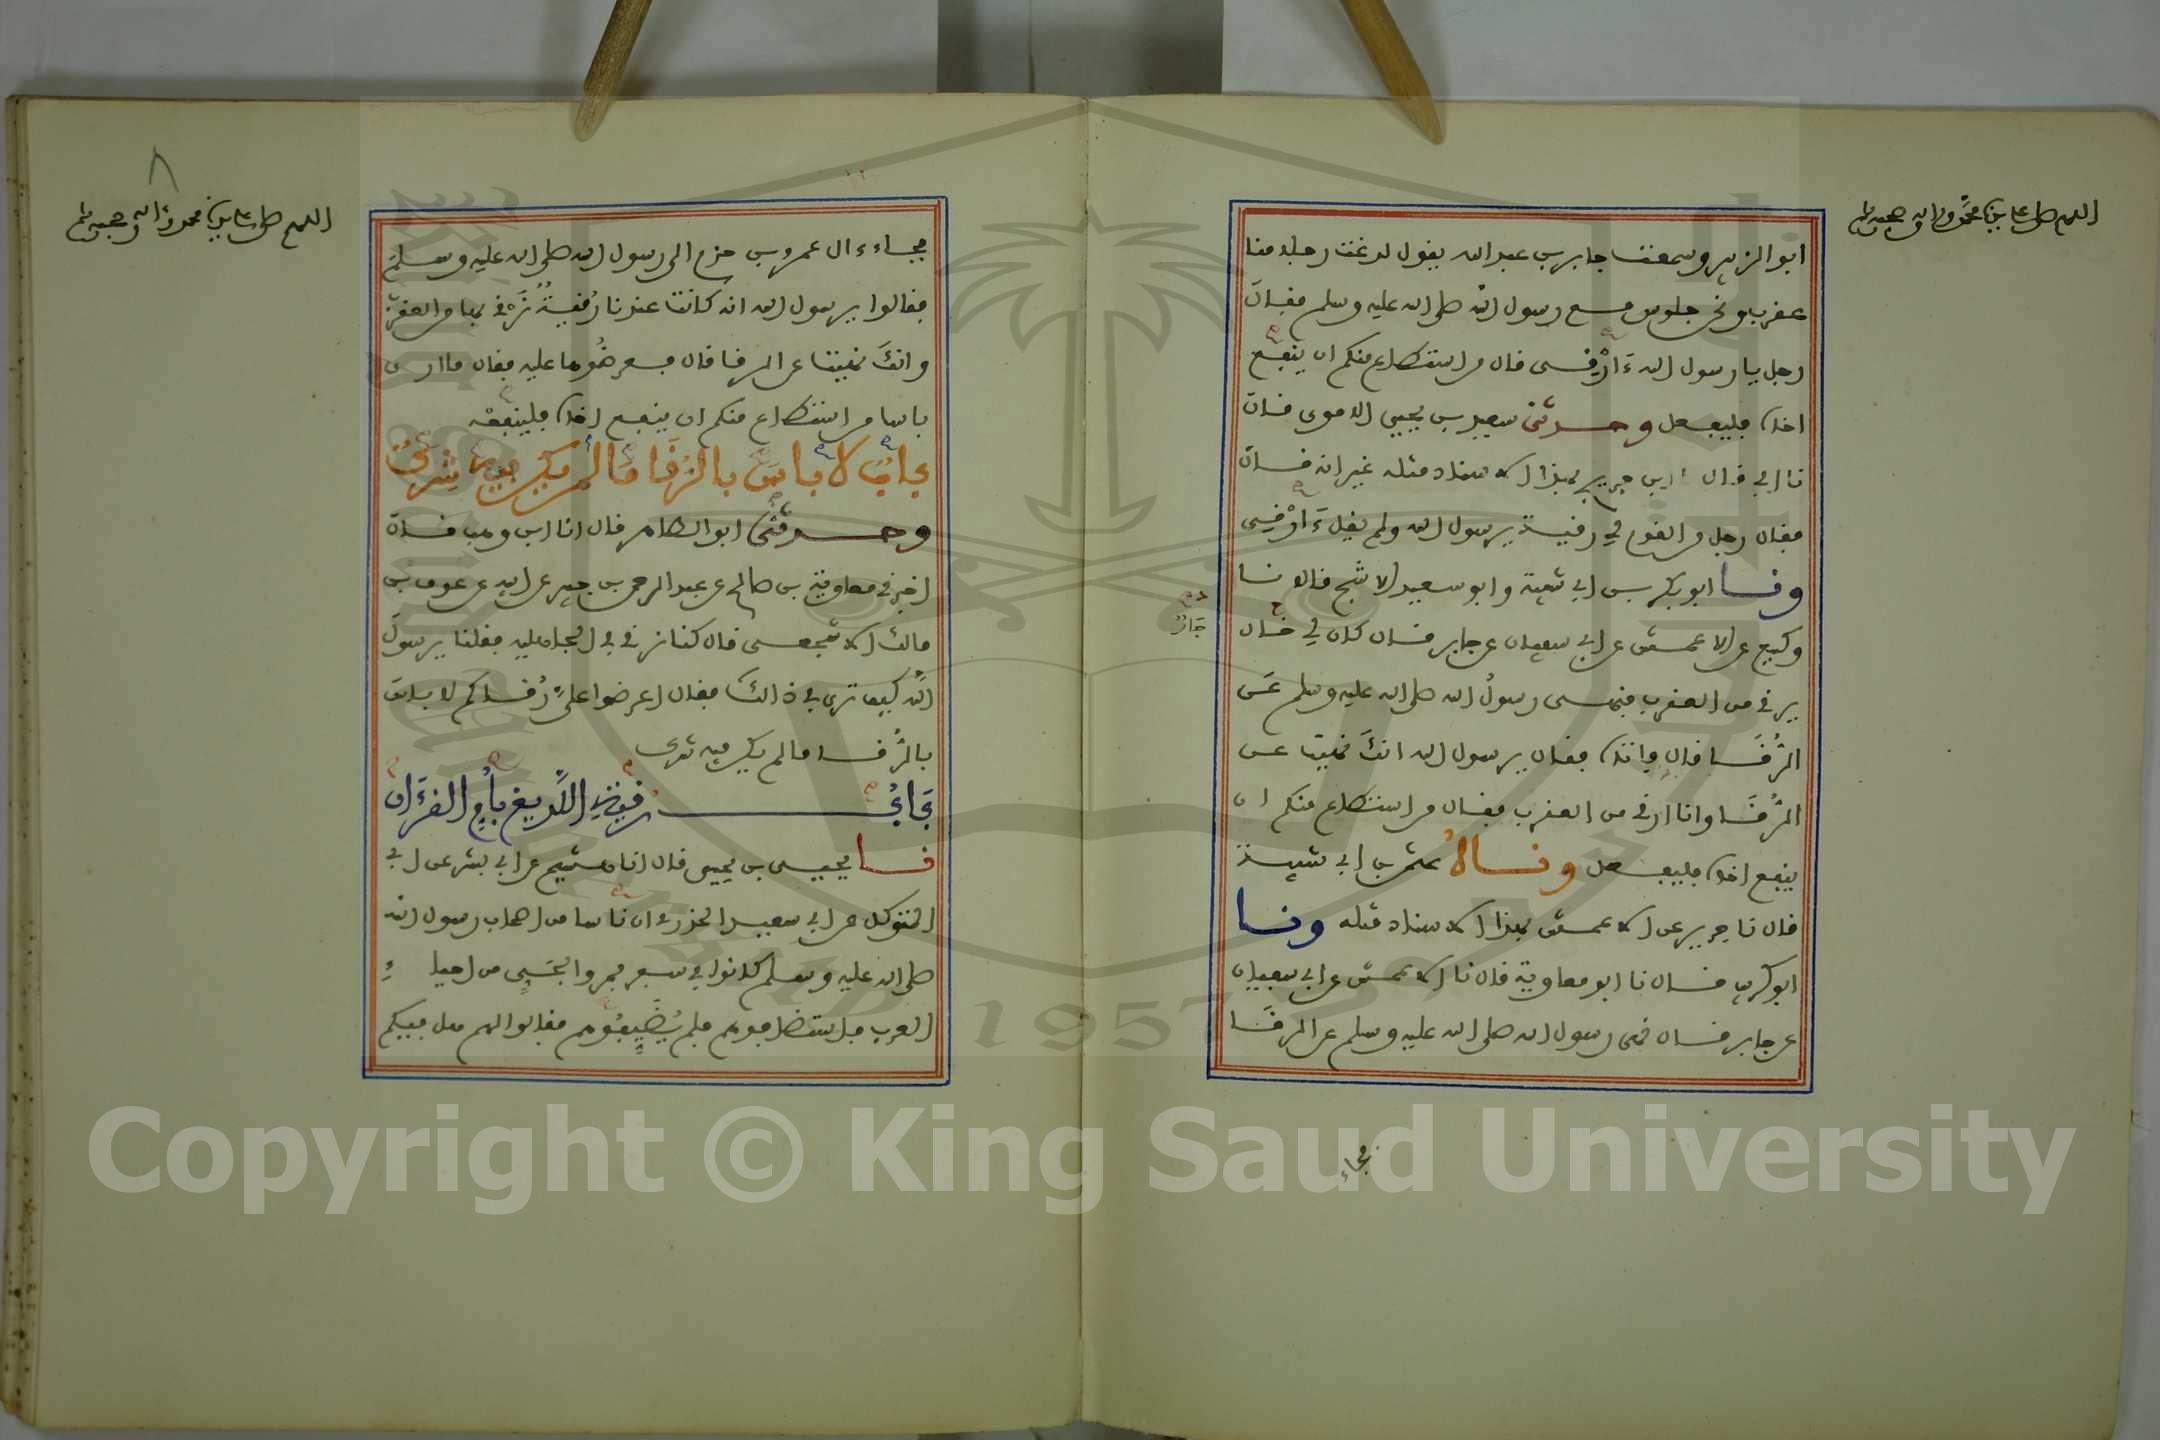 اللهم صل على سيدنا محمد وءاله وصحبه وسلم
ابو الزبير وسمعت جابر بن عبد الله يقول لدغت رجلا منا
عقرب ونحن جلوس مع رسول الله صلى الله عليه وسلم فقال
رجل يا رسول الله ءَارْقِي قال من استطاع منكم ان ينفع
اخاه فليفعل وحدثني سعيد بن يحيى الاموي قال
نا ابي قال نا ابن جريج بهذا الاسناد مثله غير انه قال
فقال رجل من القوم في رقية يرسول الله ولم يقل ءَارْقِي
ونا ابو بكر بن ابي شيبة وابو سعيد الاشج قالا نا
وكيع عن الاعمش عن ابي سفيان عن جابر قال كان لي خال
يرقي من العقرب فنهى رسول الله صلى الله عليه وسلم عَن
الرُّقَا قال فاتاه فقال يرسول الله انكَ نهيت عن
الرُّقَا وانا ارقي من العقرب فقال من استطاع منكم ان
ينفع اخاه فليفعل وناهُ عثمن بن ابي شيبة
قال نا جرير عن الاعمش بهذا الاسناد مثله ونا
ابو كريب قال نا ابو معاوية قال نا الاعمش عن ابي سفيان
عن جابر قال نهى رسول الله صلى الله عليه وسلم عن الرقَا
فجاء
اللهم صل على سيدنا محمد وءاله وصحبه وسلم
٨
فجاء ءال عمرو بن حزم الى رسول الله صلى الله عليه وسلم
فقالوا يرسول الله انه كانت عندنا رُقيةٌ نَرْقي بها من العقرب
وانكَ نهيت عن الرقا قال فعرضُوها عليه فقال ما ارى
باسا من استطاع منكم ان ينفع اخاه فلينفعْه
بابٌ لا باسَ بالرُّقَا مَا لم يكن فيه شِركٌ
وحدثني ابو الطاهر قال انا ابن وهب قال
اخبرني معاوية بن صالح عن عبد الرحمن بن جبير عن ابيه عن عوف بن
مالك الاشجعي قال كنا نرقي في الجاهلية فقلنا يرسولَ
الله كيف ترى في ذالكَ فقال اعرضوا عليَّ رُقاكم لا باسَ
بالرُّقا ما لم يكن فيه شرك
بَابُ رقيةِ اللَّديغِ بأُمِّ القرءَان
نا يحيى بن يحيى قال انا هشيم عن ابي بشر عن ابي
المتوكل عن ابي سعيد الخدري ان ناسا من اصحاب رسول الله
صلى الله عليه وسلم كانوا في سفر فمروا بحَيٍّ من احياءِ
العرب فاستضافوهم فلم يُضَيِّفُوهم فقالوا لهم هل فيكم
Copyright © King Saud University
1957